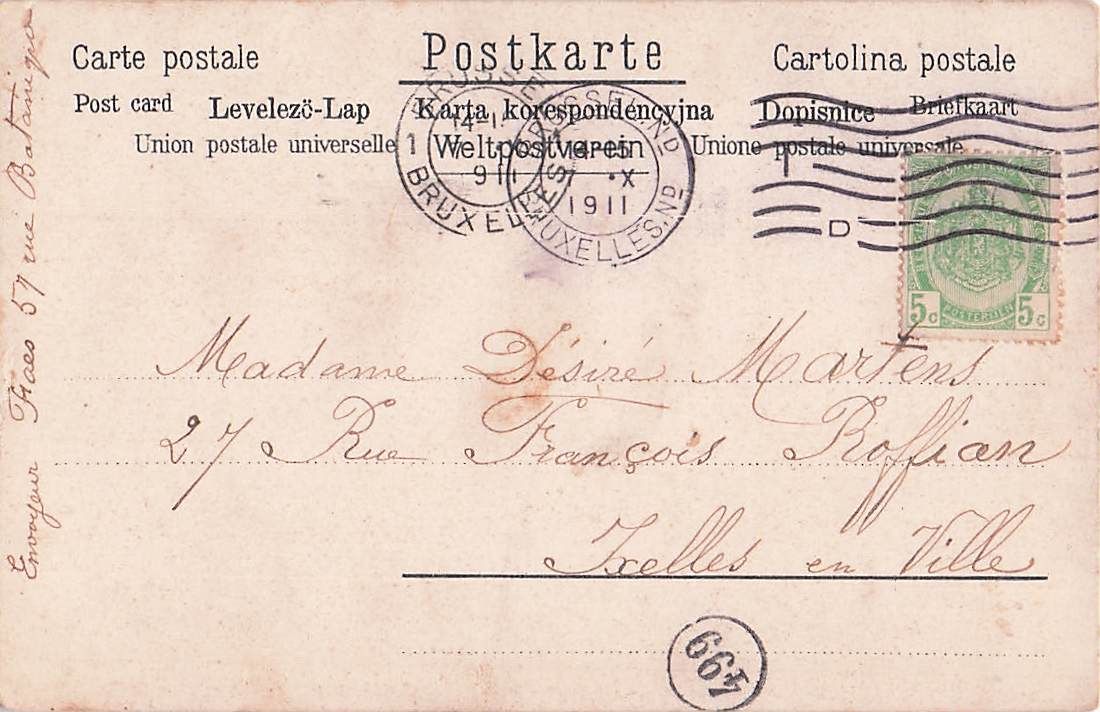 Carte postale
Postkarte
Cartolina postale
Post card
Levelező-Lap
Karta korespondencyjna
Dopisnice
Briefkaart
Union postale universelle
Weltpostverein
Unione postale universale
14-1
1
9 11
BRUXEL
14-15
7 X
1911
BRUXELLES.ND
D
5c POSTERIJEN 5c
Madame Désiré Martens
27 Rue François Roffian
Ixelles en Ville
Envoyeur Raes 57 rue Botanique
499